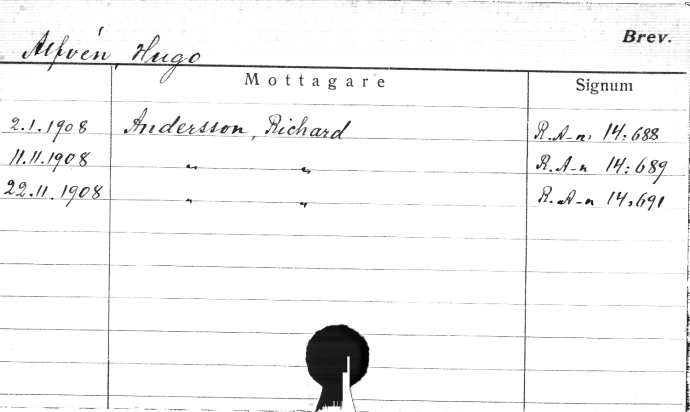 Brev.
Alfvén, Hugo
Mottagare Signum
2.1.1908 Andersson, Richard R.A-n. 14:688
11.11.1908 " " R.A-n 14:689
22.11.1908 " " R.A-n 14,691